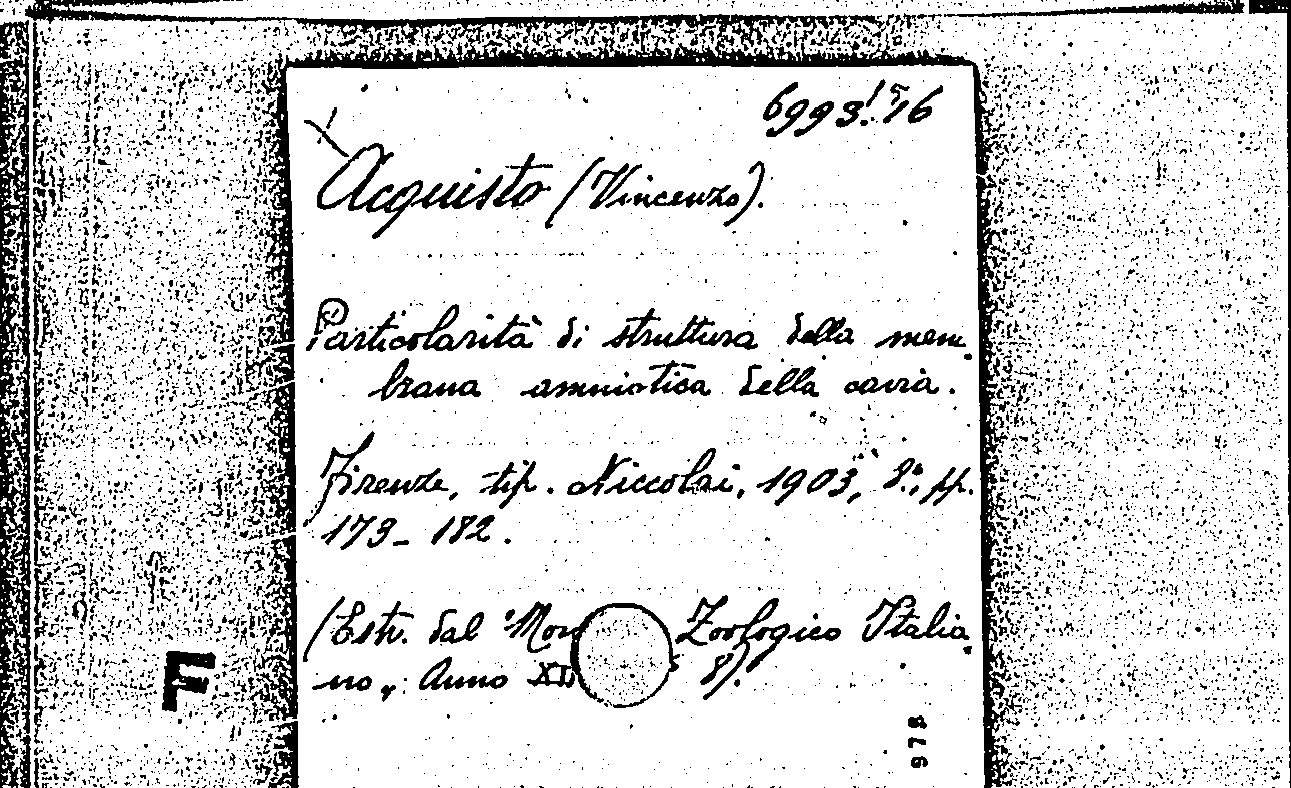 6993.
Acquisto (Vincenzo).
Particolarità di struttura della mem-
brana amniotica della cavia.
Firenze, tip. Niccolai, 1903, 8.°, pp.
173-182.
(Estr. dal "Mon Zoologico Italia-
no„ Anno 8).
F
978